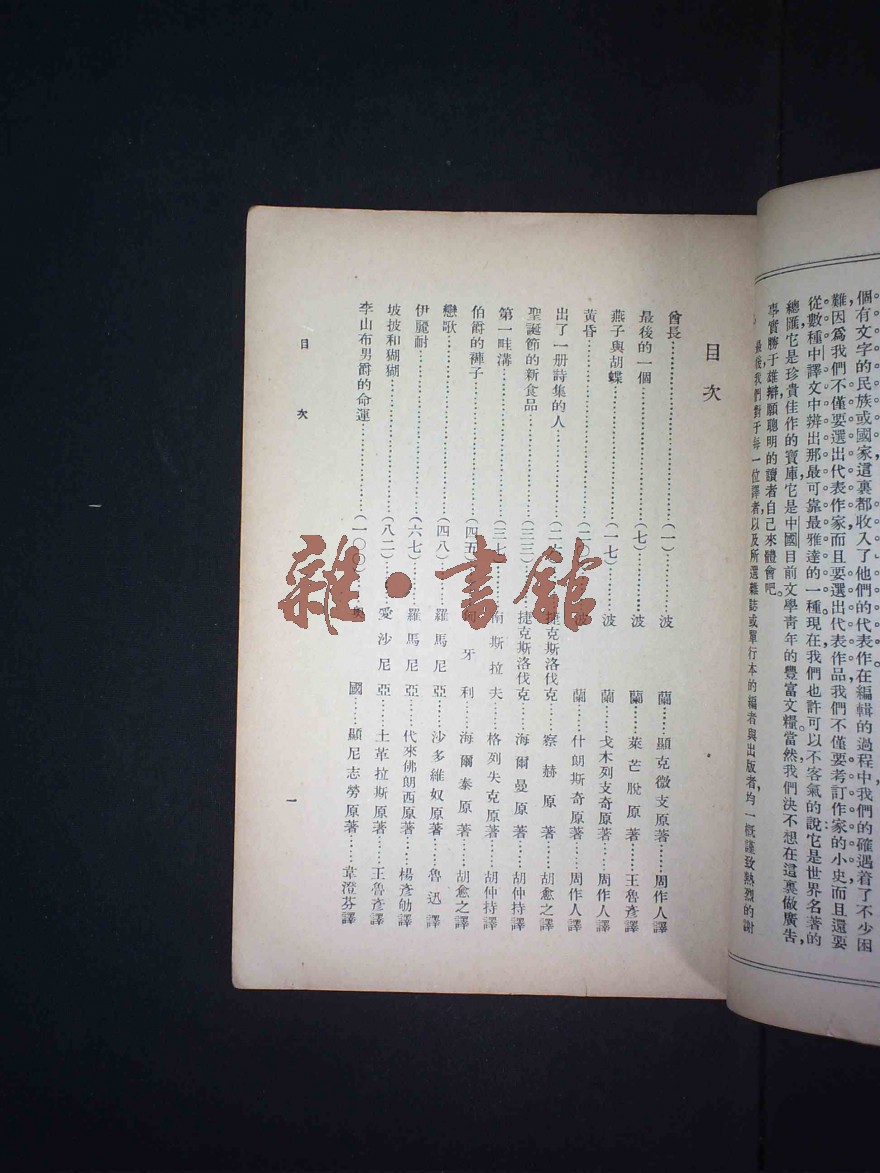 個有文字的民族或國家，這裏都收入了他們的代表作。在編輯的過程中，我們的確遇着了不少困
難，因爲我們不僅要選出代表作家，而且要選出代表作品，我們不僅要考訂作家的小史，而且還要
從數種中譯文中辨出那最可靠最雅達的一種。現在我們也許可以不客氣的說，它是世界名著的
總匯，它是珍貴佳作的寶庫，它是中國目前文學靑年的豐富文糧。當然，我們決不想在這裏做廣告，
事實勝于雄辯，願聰明的讀者自己來體會吧。
最後，我們對于每一位譯者，以及所選雜誌或單行本的編者與出版者，均一概謹致熱烈的謝
目次
酋長……(一)……波蘭……顯克微支原著……周作人譯
最後的一個……(七)……波蘭……萊芒脫原著……王魯彥譯
燕子與胡蝶……(一七)……波蘭……戈木列支奇原著……周作人譯
黃昏……(二……波蘭……什朗斯奇原著……周作人譯
出了一册詩集的人……(二……捷克斯洛伐克……察赫原著……胡愈之譯
聖誕節的新食品……(三三)……捷克斯洛伐克……海爾曼原著……胡仲持譯
第一畦溝……(三七)……南斯拉夫……格列失克原著……胡仲持譯
伯爵的褲子……(四五)……匈牙利……海爾泰原著……胡愈之譯
戀歌……(四八)……羅馬尼亞……沙多維奴原著……魯迅譯
伊麗耐……(六七)……羅馬尼亞……代來佛朗西原著……楊彥劬譯
坡披和猢猢……(八二)……愛沙尼亞……土革拉斯原著……王魯彥譯
李山布男爵的命運……(一〇〇)……奥國……顯尼志勞原著……韋澄芬譯
目次
一
雜·書館